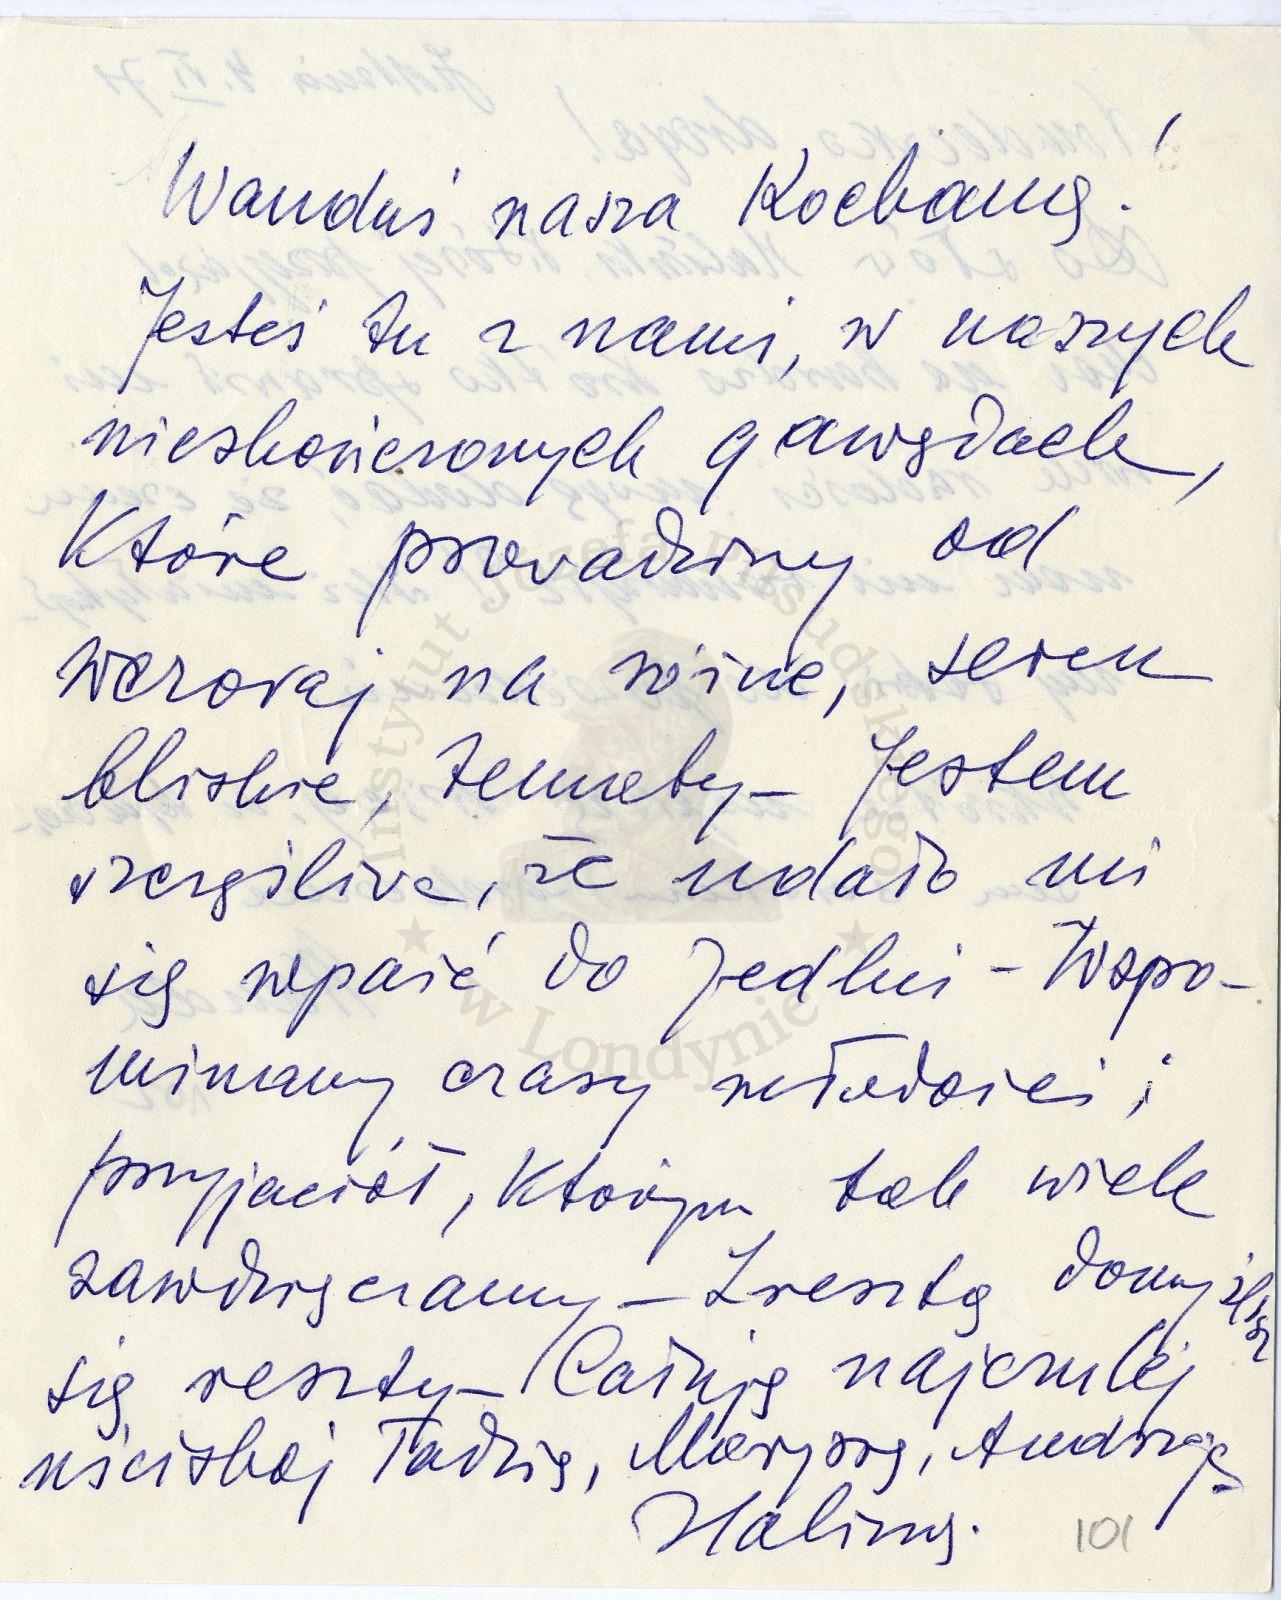 Wanduś nasza Kochana!
Jesteś tu z nami, w naszych
nieskończonych gawędach,
które prowadzimy od
wczoraj na różne, sercu
bliskie, tematy – Jestem
szczęśliwa, że udało mi
się wpaść do Jedlni – Wspo-
minamy czasy młodości i
przyjaciół, którym tak wiele
zawdzięczamy – Zresztą domyślisz
się reszty – Całuję najczulej
uściskaj Tadzia, Marysię, Andrzeja
Halina.
101
Instytut Józefa Piłsudskiego
w Londynie